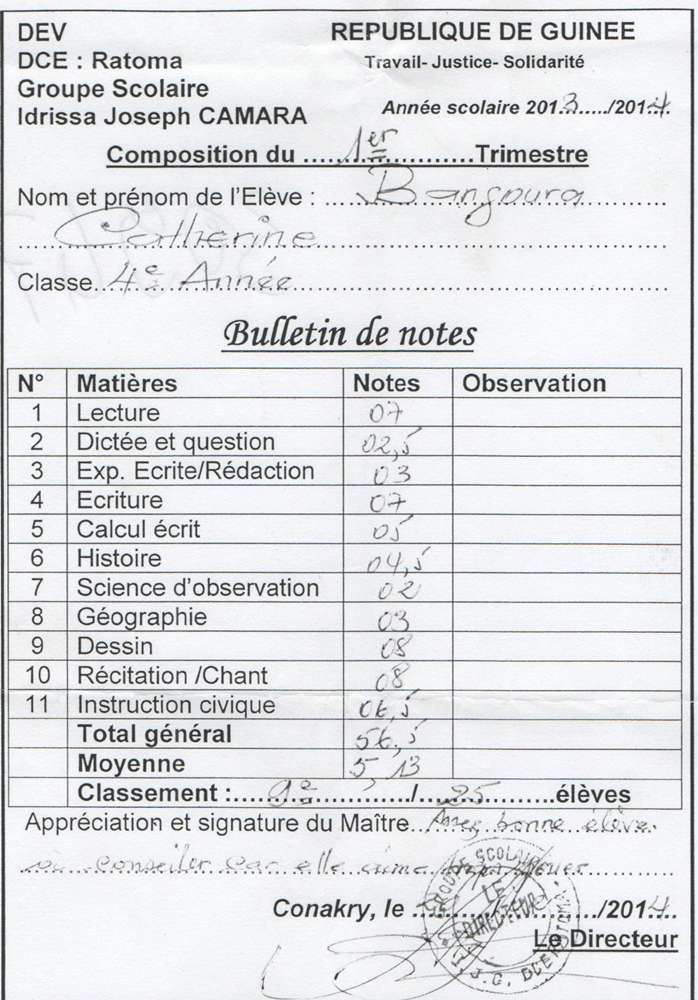 DEV REPUBLIQUE DE GUINEE
DCE : Ratoma Travail- Justice- Solidarité
Groupe Scolaire
Idrissa Joseph CAMARA Année scolaire 2013...../2014.
Composition du ......1er............Trimestre
Nom et prénom de l'Elève : ... Bangoura
Catherine
Classe. 4e Année
Bulletin de notes
N° Matières Notes Observation
1 Lecture 07
2 Dictée et question 02,5
3 Exp. Ecrite/Rédaction 03
4 Ecriture 07
5 Calcul écrit 05
6 Histoire 04,5
7 Science d'observation 02
8 Géographie 03
9 Dessin 08
10 Récitation /Chant 08
11 Instruction civique 06,5
Total général 56,5
Moyenne 5,13
Classement :.....9e............/...25..........élèves
Appréciation et signature du Maître. Assez bonne élève
conseiler car elle aime
GROUPE SCOLAIRE
LE
DIRECTEUR
Conakry, le ........../........../2014
Le Directeur